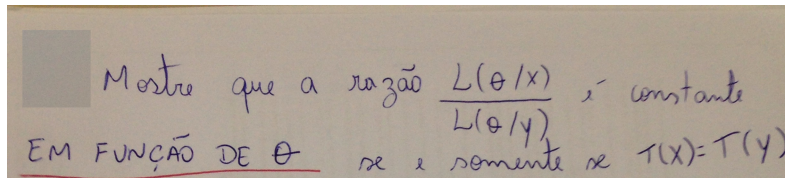 Mostre que a razão L(θ/x) / L(θ/y) é constante
EM FUNÇÃO DE θ se e somente se T(X)=T(Y)